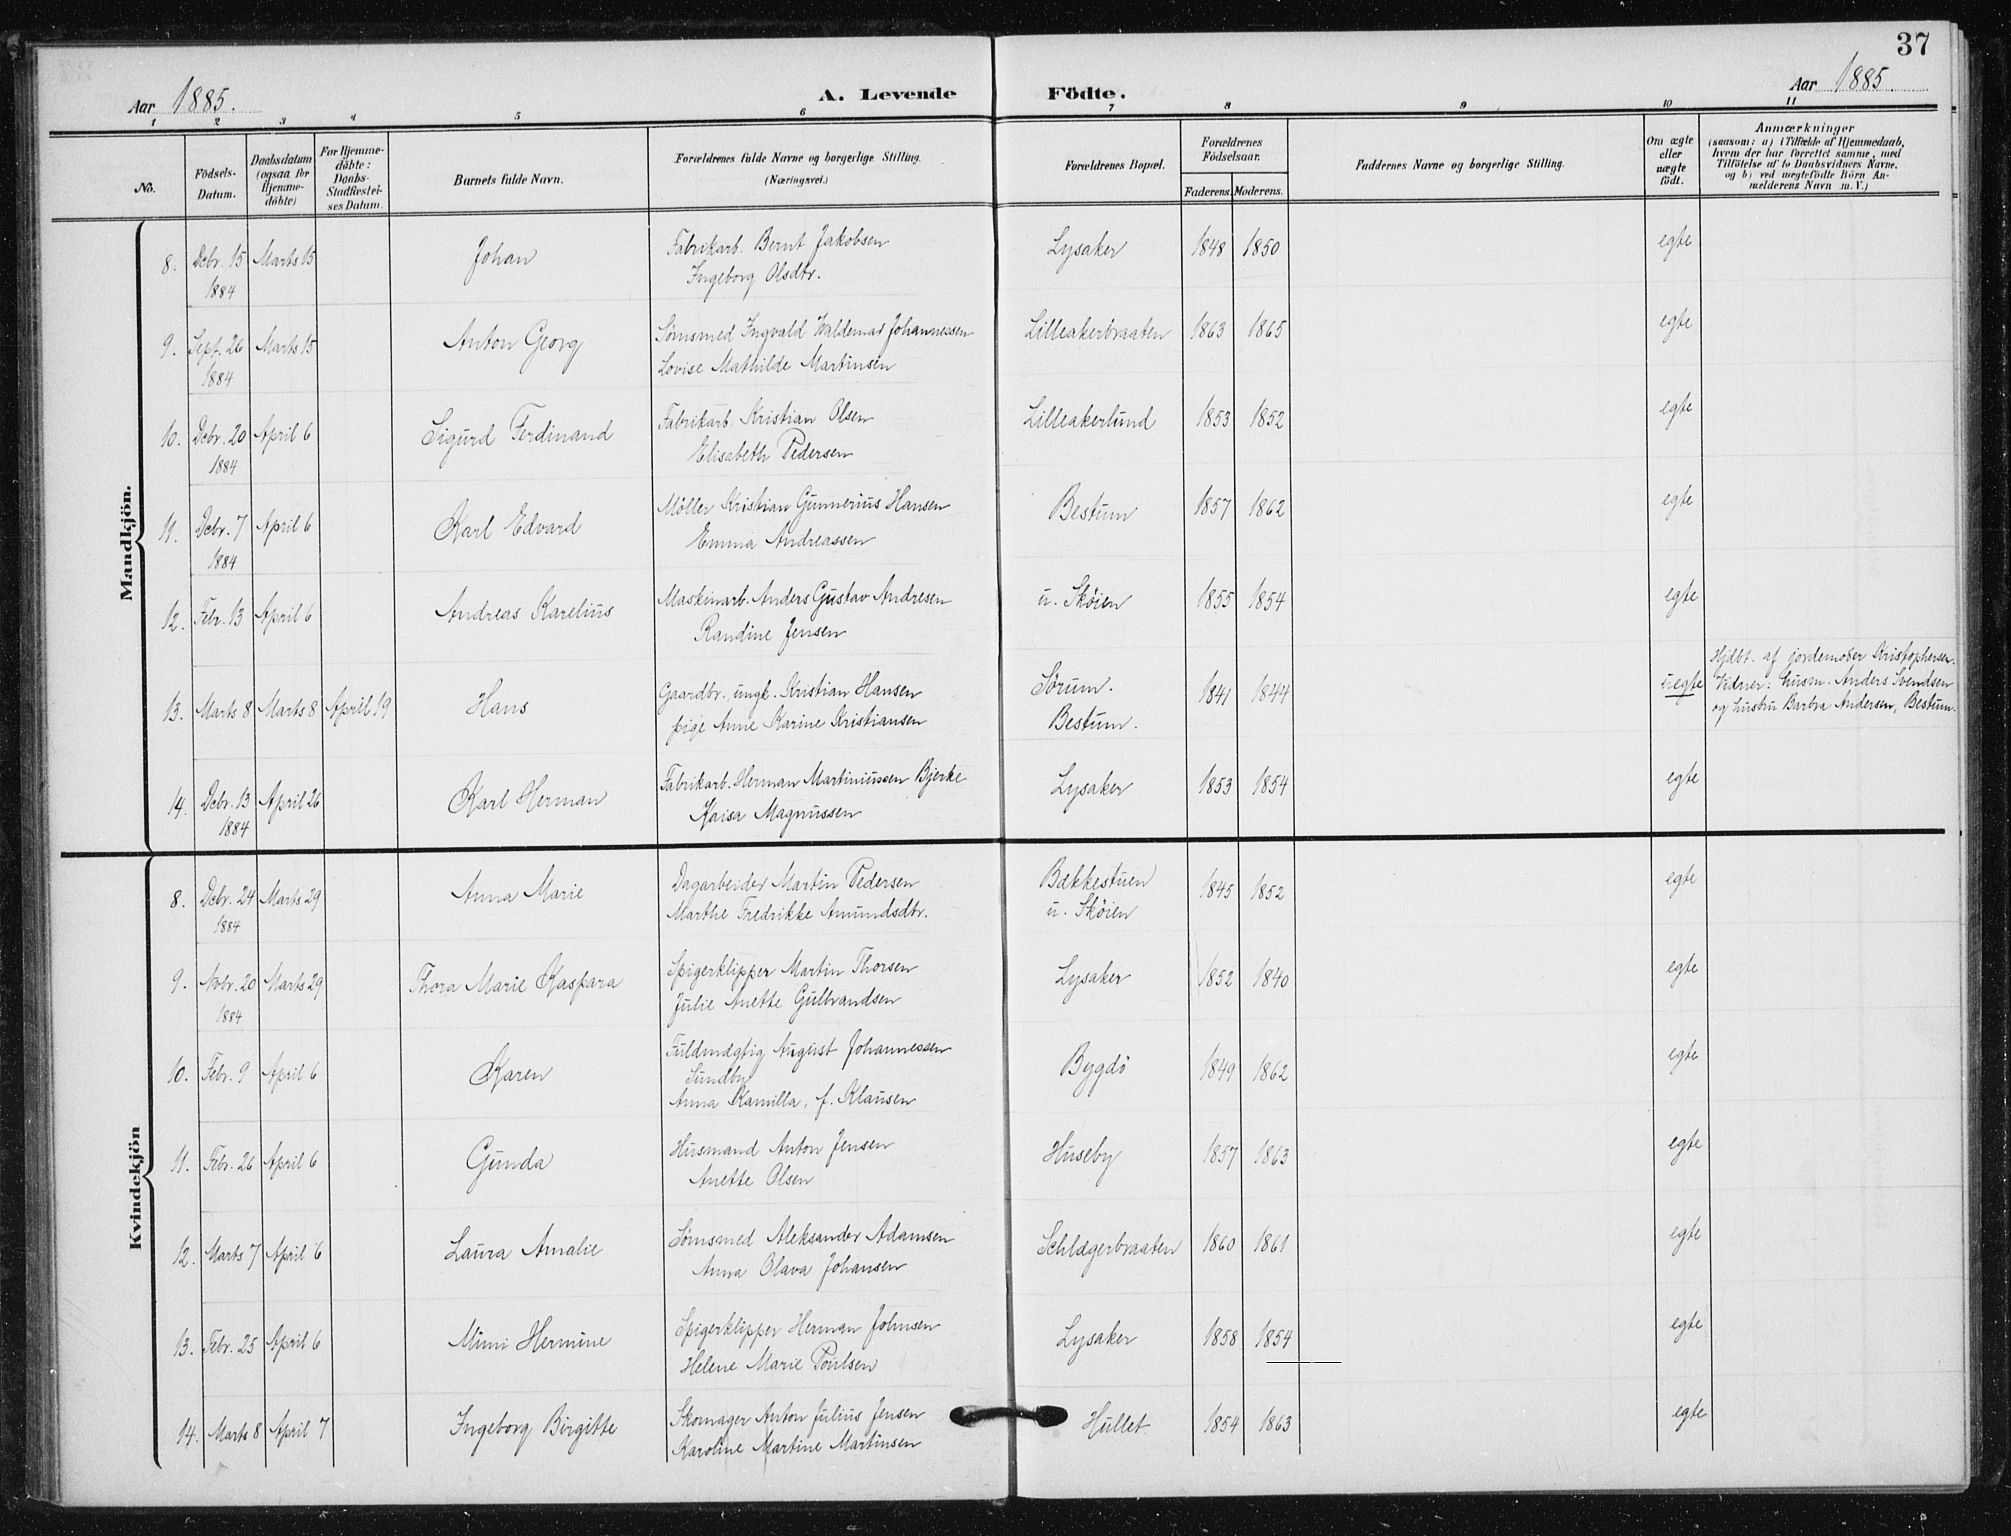 37
Aar 1885. A. Levende Födte. Aar 1885.
1 2 3 4 5 6 7 8 9 10 11
No. Födsels-Datum. Daabsdatum (ogsaa for Hjemme-döbte) For Hjemme-döbte: Daabs-Stadfæstel-ses Datum. Barnets fulde Navn. Forældrenes fulde Navne og borgerlige Stilling. (Næringsvei.) Forældrenes Bopæl. Forældrenes Födselsaar. Faderens. Moderens. Faddernes Navne og borgerlige Stilling. Om ægte eller uægte födt. Anmærkninger (saasom: a) i Tilfælde af Hjemmedaab, hvem der har forrettet samme, med Tilföielse af to Daabsvidners Navne, og b) ved uægtefödte Börn An-melderens Navn m. V.)
Mandkjön.
8. Dcbr. 15 Marts 15 Johan Fabrikarb. Bernt Jakobsen Lysaker 1848 1850 egte
1884 Ingeborg Olsdtr.
9. Sept. 26 Marts 15 Anton Georg Sømsmed Ingvald Waldemar Johannessen Lilleakerbraaten 1863 1865 egte
1884 Lovise Mathilde Martinsen
10. Dcbr. 20 April 6 Sigurd Ferdinand Fabrikarb. Kristian Olsen Lilleakerlund 1853 1852 egte
1884 Elisabeth Pedersen
11. Dcbr. 7 April 6 Karl Edvard Møller Kristian Gunnerius Hansen Bestum 1857 1862 egte
1884 Emma Andreassen
12. Febr. 13 April 6 Andreas Karelius Maskinarb. Anders Gustav Andresen u. Skøien 1855 1854 egte
Randine Jensen
13. Marts 8 Marts 8 April 19 Hans Gaardbr. ungk. Kristian Hansen Sørum. 1841 1844 uegte Hjdbt. af jordemoder Kristophersen.
Vidner: husm. Anders Svendsen
pige Anne Karine Kristiansen Bestum. og hustru Barbra Andersen, Bestum.
14. Dcbr. 13 April 26 Karl Herman Fabrikarb. Herman Martiniussen Bjerke Lysaker 1853 1854 egte
1884 Kaisa Magnussen
Kvindekjön
8. Dcbr. 24 Marts 29 Anna Marie Dagarbeider Martin Pedersen Bækkestuen 1845 1852 egte
1884 Marthe Fredrikke Amundsdtr. u. Skøien
9. Novbr. 20 Marts 29 Thora Marie Kaspara Spigerklipper Martin Thorsen Lysaker 1852 1840 egte
1884 Julie Anette Gulbrandsen
10. Febr. 9 April 6 Karen Fuldmægtig August Johannessen Bygdö 1849 1862 egte
Sundby
Anna Kamilla, f. Klausen
11. Febr. 26 April 6 Gunda Husmand Anton Jensen Huseby 1857 1863 egte
Anette Olsen
12. Marts 7 April 6 Laura Amalie Sømsmed Aleksander Adamsen Schlægerbraaten 1860 1861 egte
Anna Olava Johansen
13. Febr. 25 April 6 Mimi Hermine Spigerklipper Herman Johnsen Lysaker 1858 1854 egte
Helene Marie Poulsen
14. Marts 8 April 7 Ingeborg Birgitte Skomager Anton Julius Jensen Hullet. 1854 1863 egte
Karoline Martine Martinsen